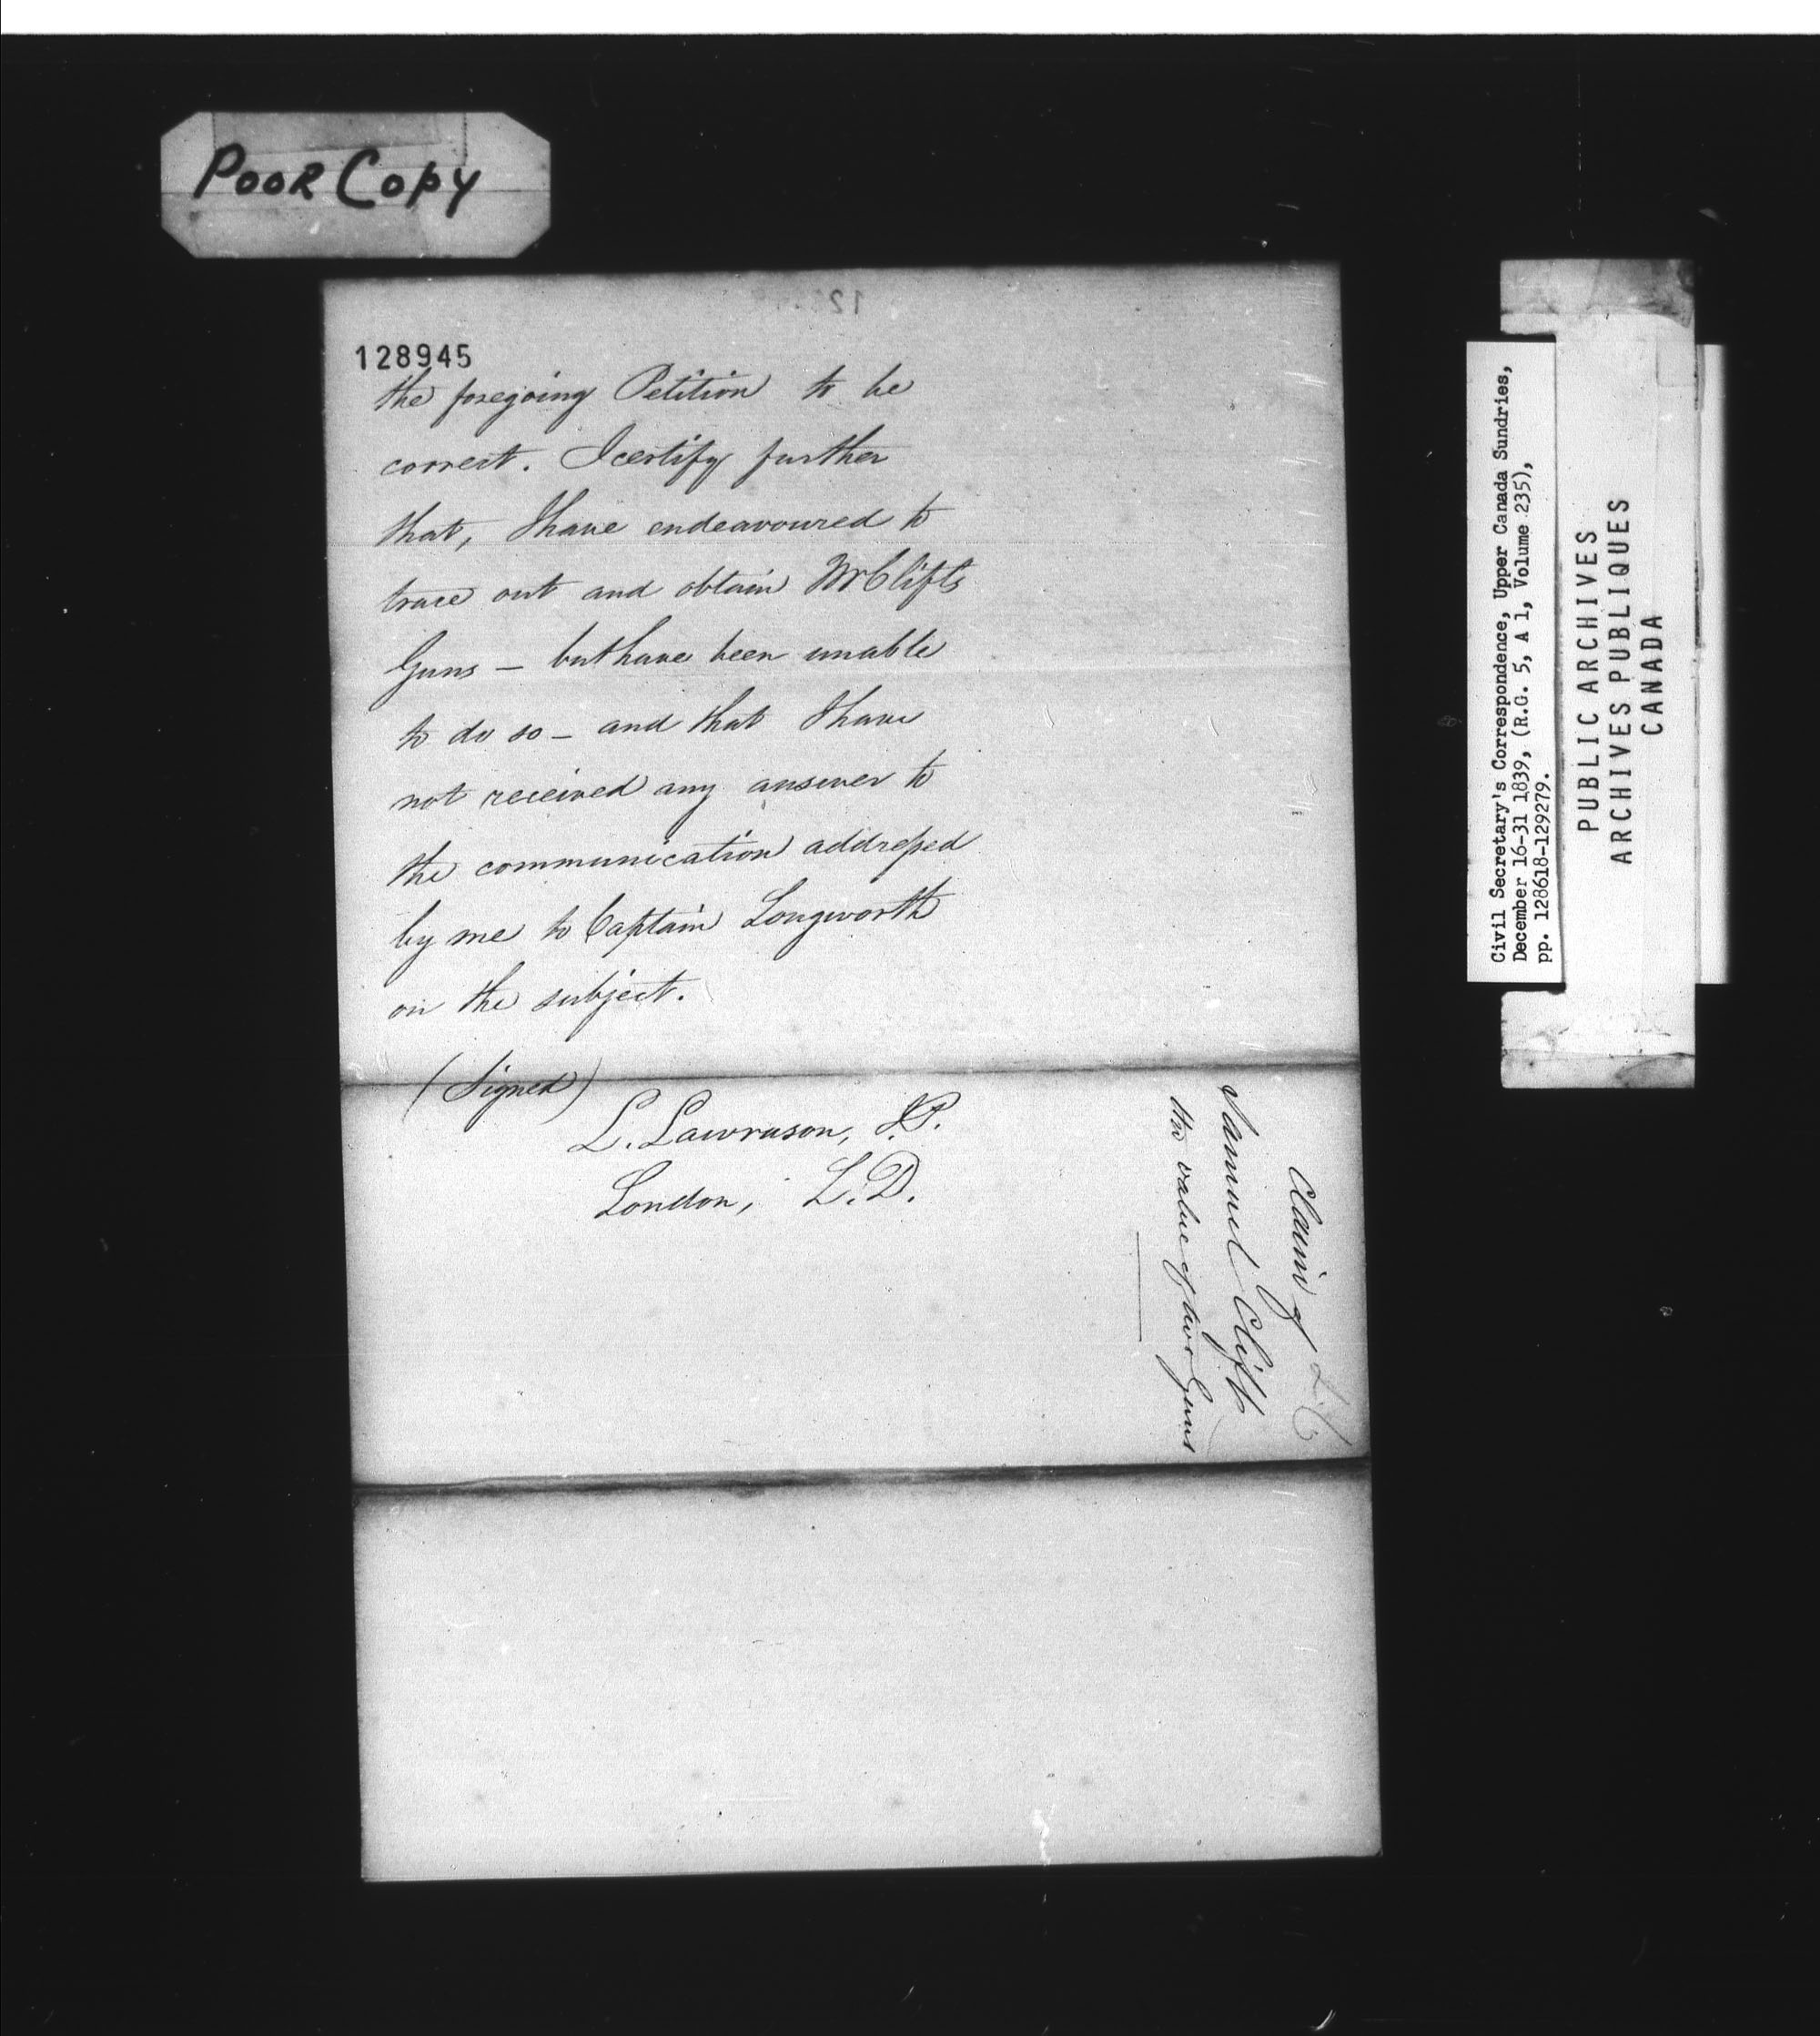 Poor Copy
128945
the foregoing Petition to be
correct. I certify further
that, I have endeavoured to
trace out and obtain Mr Clifts
Guns — but have been unable
to do so — and that I have
not received any answer to
the communication addressed
by me to Captain Longworth
on the subject.
(Signed)
L. Lawrason, J.P.
London, L.D.
Claim of
Samuel Clift
the value of two Guns
Civil Secretary's Correspondence, Upper Canada Sundries,
December 16-31 1839, (R.G. 5, A 1, Volume 235),
pp. 128618-129279.
PUBLIC ARCHIVES
ARCHIVES PUBLIQUES
CANADA